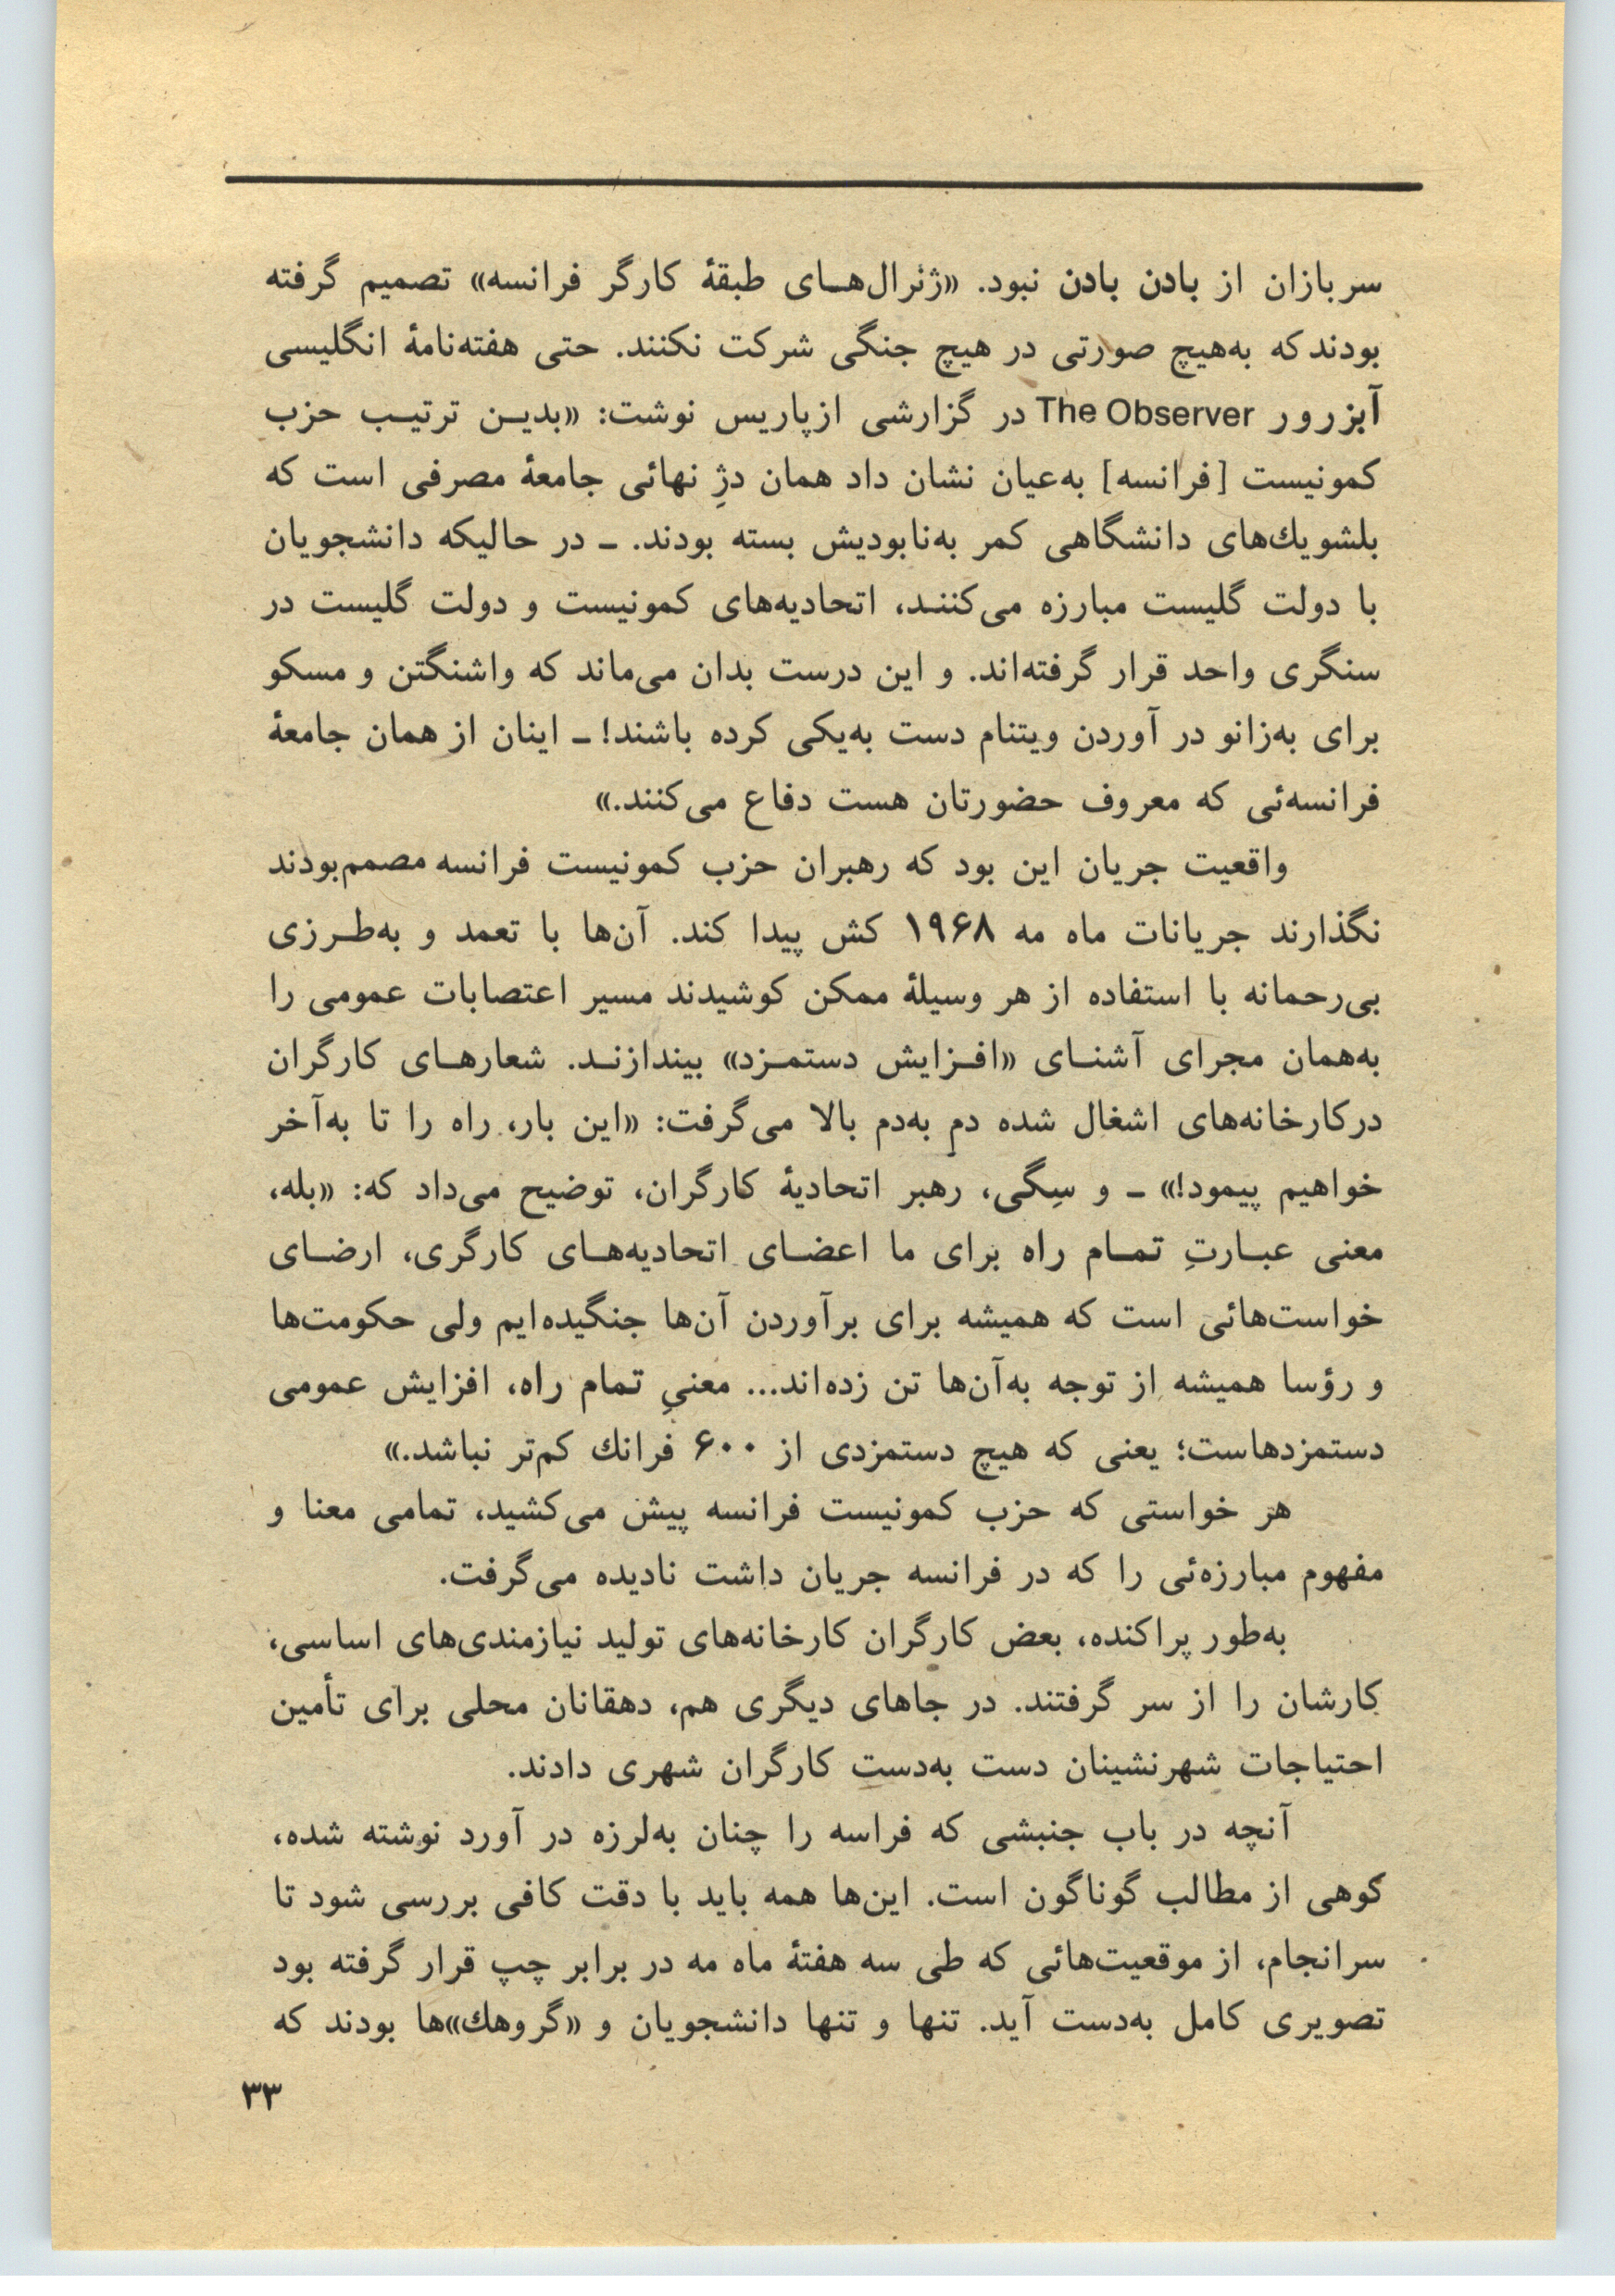 سربازان از بادن بادن نبود. «ژنرال‌هـای طبقهٔ کارگر فرانسه» تصمیم گرفته
بودند که به‌هیچ صورتی در هیچ جنگی شرکت نکنند. حتی هفته‌نامهٔ انگلیسی
آبزرور The Observer در گزارشی ازپاریس نوشت: «بدیـن ترتیـب حزب
کمونیست [فرانسه] به‌عیان نشان داد همان دژِ نهائی جامعهٔ مصرفی است که
بلشویك‌های دانشگاهی کمر به‌نابودیش بسته بودند. ـ در حالیکه دانشجویان
با دولت گلیست مبارزه می‌کننـد، اتحادیه‌های کمونیست و دولت گلیست در
سنگری واحد قرار گرفته‌اند. و این درست بدان می‌ماند که واشنگتن و مسکو
برای به‌زانو در آوردن ویتنام دست به‌یکی کرده باشند! ـ اینان از همان جامعهٔ
فرانسه‌ئی که معروف حضورتان هست دفاع می‌کنند.»
واقعیت جریان این بود که رهبران حزب کمونیست فرانسه مصمم‌بودند
نگذارند جریانات ماه مه ۱۹۶۸ کش پیدا کند. آن‌ها با تعمد و به‌طـرزی
بی‌رحمانه با استفاده از هر وسیلهٔ ممکن کوشیدند مسیر اعتصابات عمومی را
به‌همان مجرای آشنـای «افـزایش دستمـزد» بیندازنـد. شعارهـای کارگران
درکارخانه‌های اشغال شده دمِ به‌دم بالا می‌گرفت: «این بار، راه را تا به‌آخر
خواهیم پیمود!» ـ و سِگی، رهبر اتحادیهٔ کارگران، توضیح می‌داد که: «بله،
معنی عبـارتِ تمـام راه برای ما اعضـای اتحادیه‌هـای کارگری، ارضـای
خواست‌هائی است که همیشه برای برآوردن آن‌ها جنگیده‌ایم ولی حکومت‌ها
و رؤسا همیشه از توجه به‌آن‌ها تن زده‌اند... معنیِ تمام راه، افزایش عمومی
دستمزدهاست؛ یعنی که هیچ دستمزدی از ۶۰۰ فرانك کم‌تر نباشد.»
هر خواستی که حزب کمونیست فرانسه پیش می‌کشید، تمامی معنا و
مفهوم مبارزه‌ئی را که در فرانسه جریان داشت نادیده می‌گرفت.
به‌طور پراکنده، بعض کارگران کارخانه‌های تولید نیازمندی‌های اساسی،
کارشان را از سر گرفتند. در جاهای دیگری هم، دهقانان محلی برای تأمین
احتیاجات شهرنشینان دست به‌دست کارگران شهری دادند.
آنچه در باب جنبشی که فراسه را چنان به‌لرزه در آورد نوشته شده،
کوهی از مطالب گوناگون است. این‌ها همه باید با دقت کافی بررسی شود تا
سرانجام، از موقعیت‌هائی که طی سه هفتهٔ ماه مه در برابر چپ قرار گرفته بود
تصویری کامل به‌دست آید. تنها و تنها دانشجویان و «گروهك»ها بودند که
۳۳